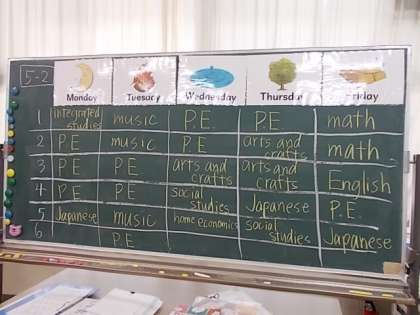 5-2
Monday Tuesday Wednesday Thursday Friday
1 integrated studies music P.E. P.E. math
2 P.E. music P.E. arts and crafts math
3 P.E. P.E. arts and crafts arts and crafts English
4 P.E. P.E. social studies Japanese P.E.
5 Japanese music home economics social studies Japanese
6 P.E.